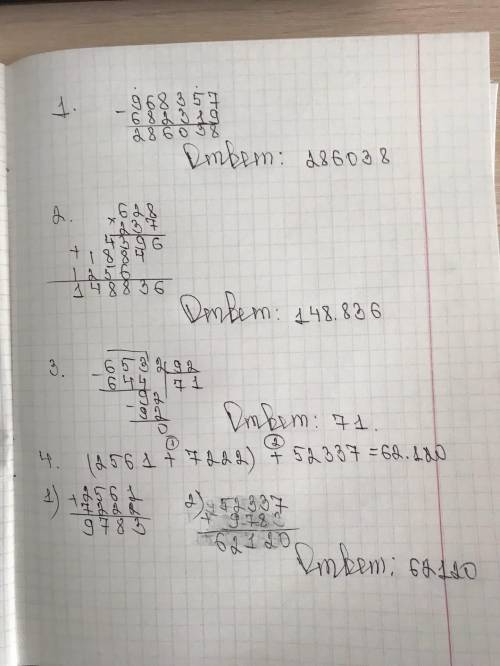 1. - 968357
682319
286038
Ответ: 286038
2. × 628
237
4396
+ 1884
1256
148836
Ответ: 148.836
3. - 6532 | 92
644 | 71
- 92
92
0
Ответ: 71.
1 2
4. (2561 + 7222) + 52337 = 62.120
1) + 2561 2) + 52337
7222 978
9783 62120
Ответ: 62120